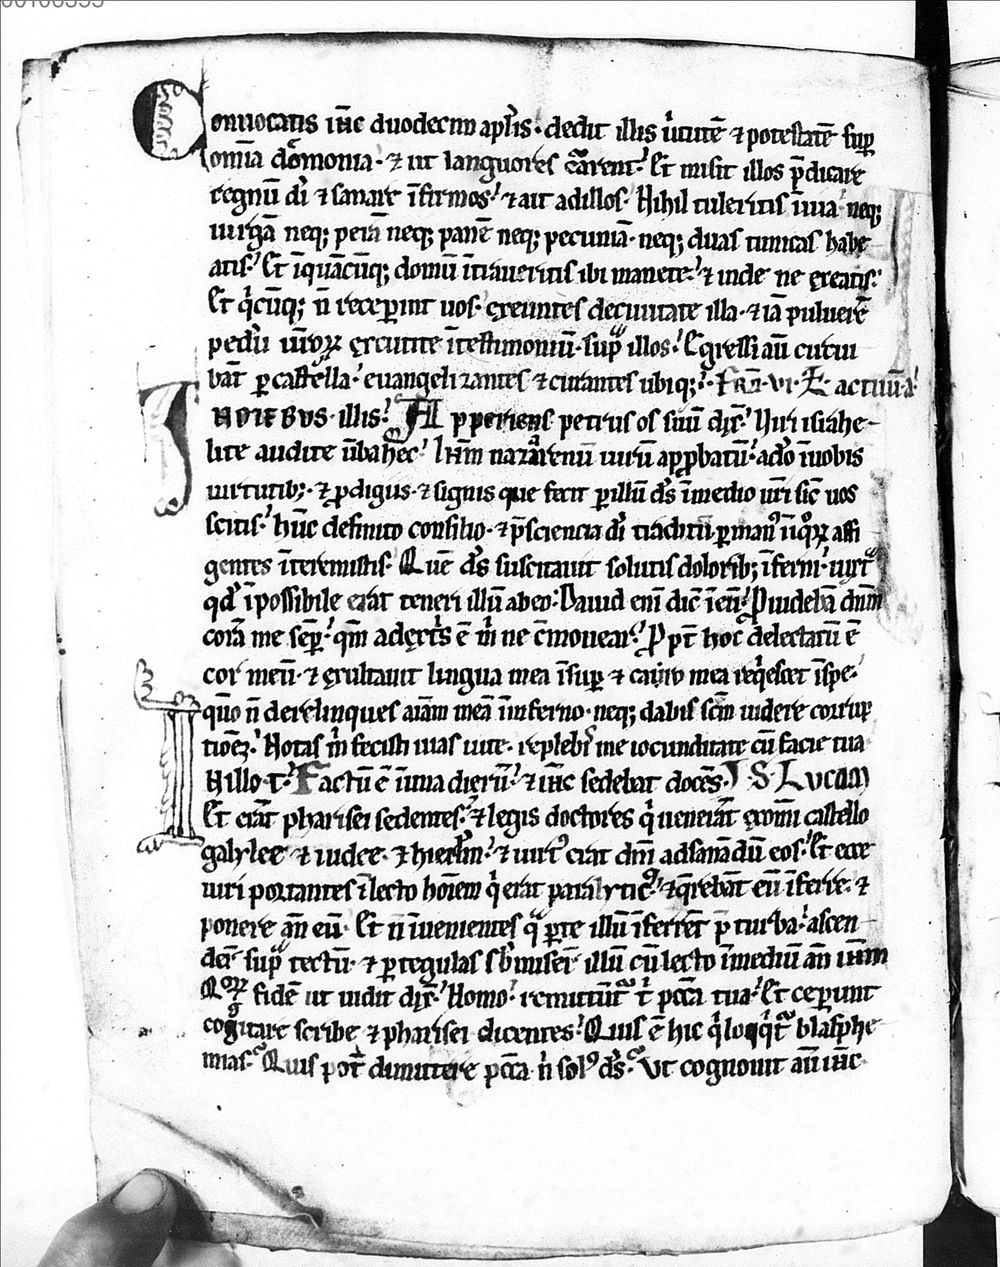 Conuocatis ih̄c duodecim apl̄is · dedit illis u̇tutē ⁊ potestatē sup̄
om̄ia demonia · ⁊ ut languores cūrarent · Et misit illos p̄dicare
regnū dī ⁊ sanare īfirmos · ⁊ ait ad illos · Nihil tuleritis ī uia · neq;
uirgā neq; perā neq; panē neq; pecuniā · neq; duas tunicas habe
atis · Et ī quācūq; domū ītraueritis ibi manete · ⁊ inde ne exeatis ·
Et q̇cūq; n̄ recep̄int uos · exeuntes de ciuitate illa · ⁊ iā puluerē
pedū ur̄oꝝ excutite ī testimoniū · sup̄ illos · Egressi aū circui
bāt ꝑ castella · euangelizantes ⁊ curantes ubiq; · Fr̄a · vi · L · actuū · a ·
IN DIEBVS · illis · Apperiens petrus os suū dix̄ · Uiri israhe
lite audite ūba hec · ih̄m nazarenū uirū app̄batū · a dō ī uobis
uirtutib; · ⁊ ꝓdigiis · ⁊ signis que fecit ꝑ illū dс̄ ī medio ur̄i sic̄ uos
scitis · hūc definito consilio · ⁊ p̄sciencia dī tradītū ꝑ man᷒ inīqoꝝ affi
gentes īteremistis · Quē ds̄ suscitauit solutis dolorib; īferni · iuxt
qd̄ īpossibile erat teneri illū ab eo · Dauid eni dic̄ ī eū · Prouidebā dn̄m
corā me sēp · qm̄ a dextris ē m̄ ne cōmouear · Ppt̄ hoc delectatū ē
cor meū · ⁊ exultauit lingua mea īsup̄ ⁊ caro mea req̇escet ī spe ·
qn̄o n̄ derelinques aīam meā ī inferno · neq; dabis sc̄m uidere corrup
tionē · Notas m̄ fecisti uias uite · replebis me iocunditate cū facie tua
IN illo · t · Factū ē ī una dierū · ⁊ ih̄c sedebat docēs · S · Lucam
Et erāt pharisei sedentes · ⁊ legis doctores q̇ uenerāt ex omī castello
galylee ⁊ iudee · ⁊ hierlm̄ · ⁊ uirt᷒ erat dn̄i ad sanādū eos · Et ecce
uiri portantes ī lecto hoīem q̇ erat paralytic᷒ · ⁊ q̄rebāt eū īferre · ⁊
ponere an̄ eū · Et n̄ īuenientes qa parte illū īferrēt p̄ turba · ascen
dert̄ sup̄ tectū · ⁊ ꝑ tegulas sūmiser̄ illū cū lecto ī mediū an̄ ih̄m
Qoꝝ fidē ut uidit dix̄ · Homo · remittūt t̄ pcc̄a tua · Et ceper̄unt
cogitare scribe ⁊ pharisei dicentes · Quis ē hic q̇ loq̇t blasphe
mias · Quis pot̄ dimittere pcc̄a n̄ sol᷒ ds̄ · Ut cognouit aū ih̄c